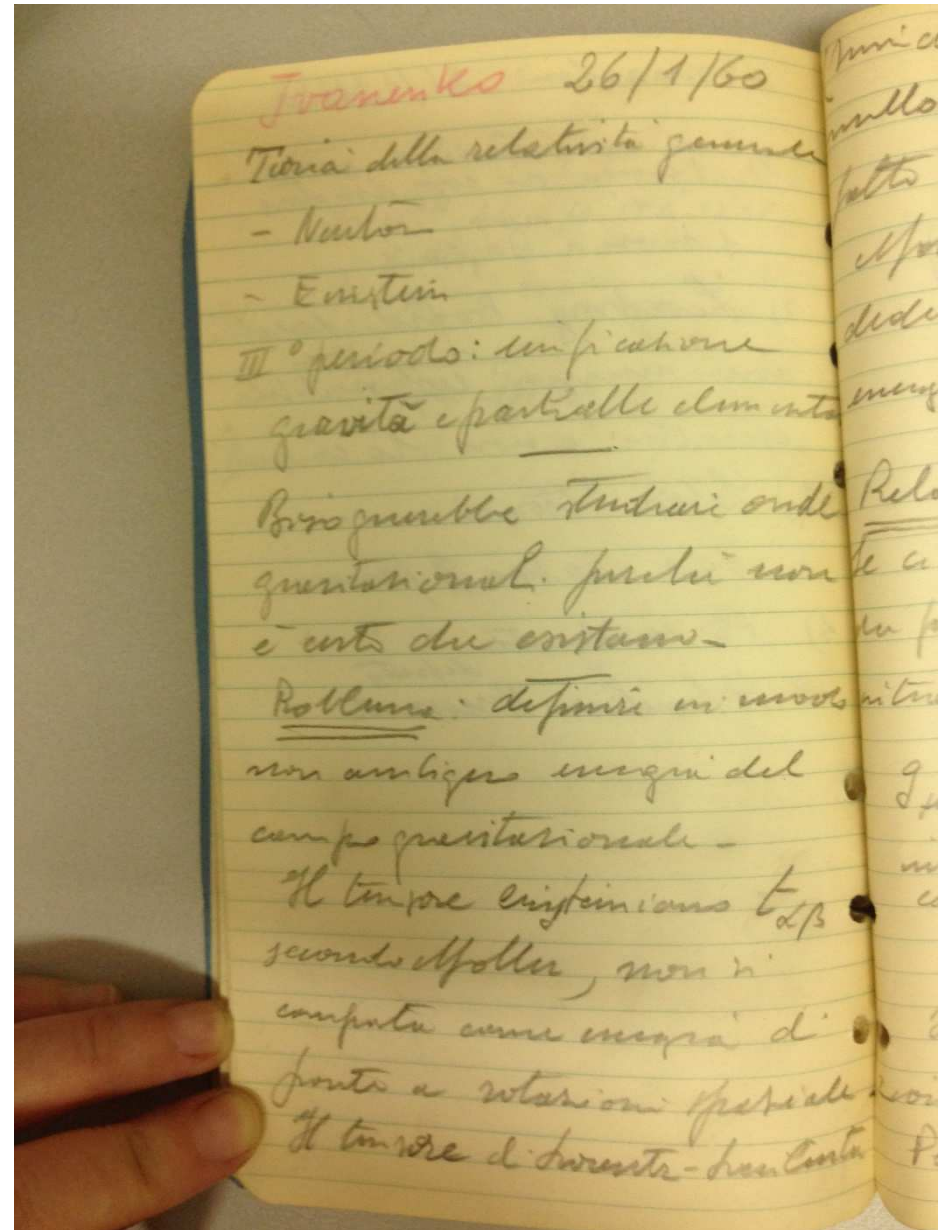 Ivanenko 26/1/60
Teoria della relatività generale
- Newton
- Einstein
III° periodo: unificazione
gravità e particelle elementa
Bisognerebbe studiare onde
gravitazional. perchè non
è certo che esistano -
Problema: definire in modo
non ambiguo energia del
campo gravitazionale -
Il tensore einsteiniano tαβ
secondo Møller, non si
comporta come energia di
fronte a rotazioni spaziale
Il tensore di Lorentz-Levi Civita
nullo
fatto
Rela